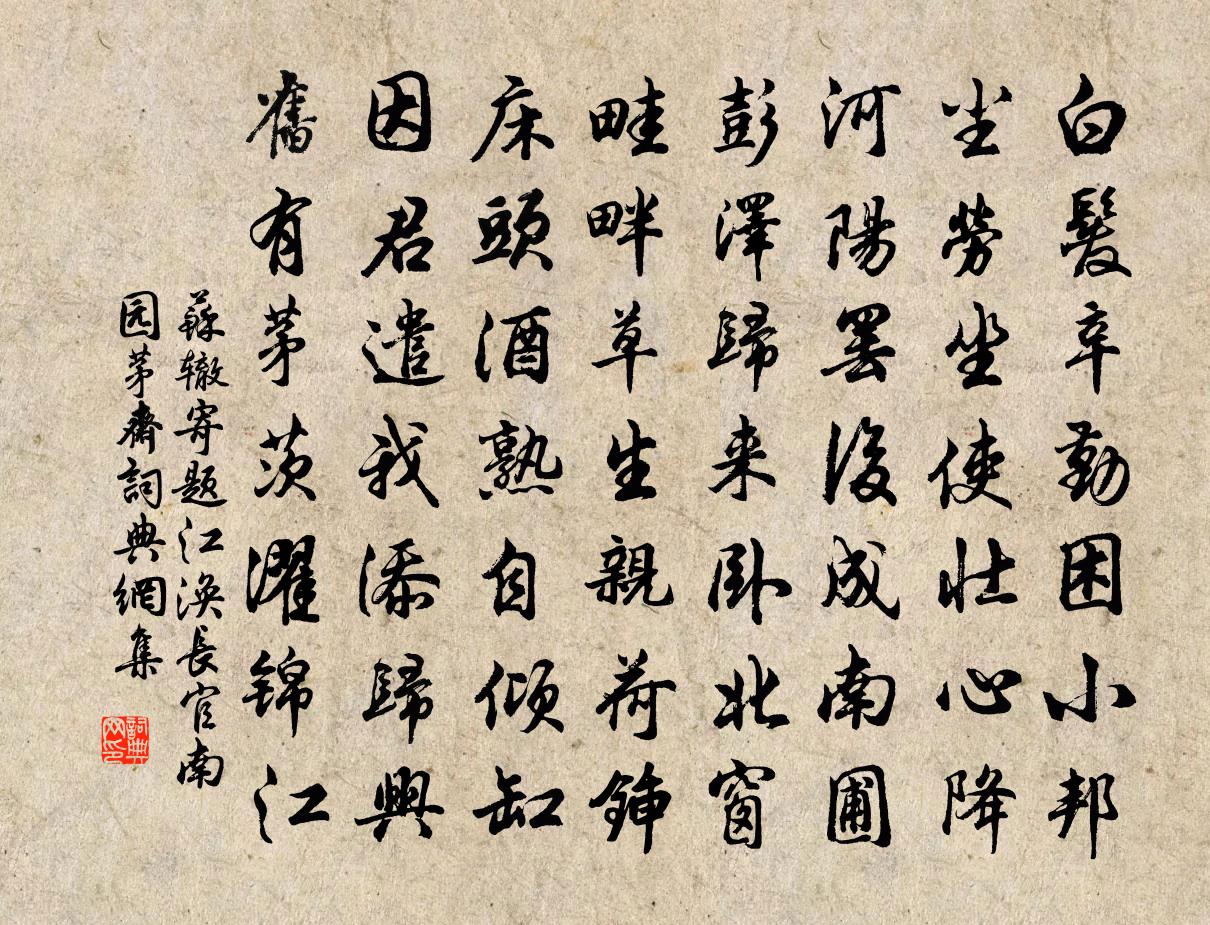 白髮辛勤困小邦
坐勞坐使壯心降
河陽罷後成南圃
彭澤歸来卧北窗
畦畔草生親荷鍤
床頭酒熟自倾缸
因君遣我添歸興
舊有茅茨濯錦江
蘇辙寄題江渙長官南
园茅齋詞典網集
詞典网印